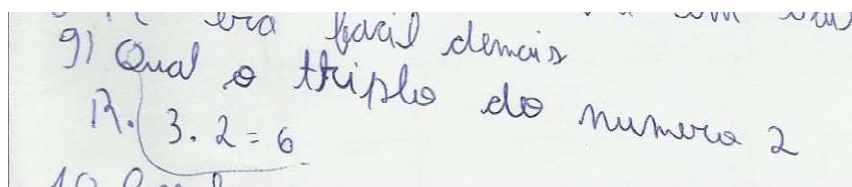 era facil demais
9) Qual o triplo do numero 2
R. 3. 2 = 6